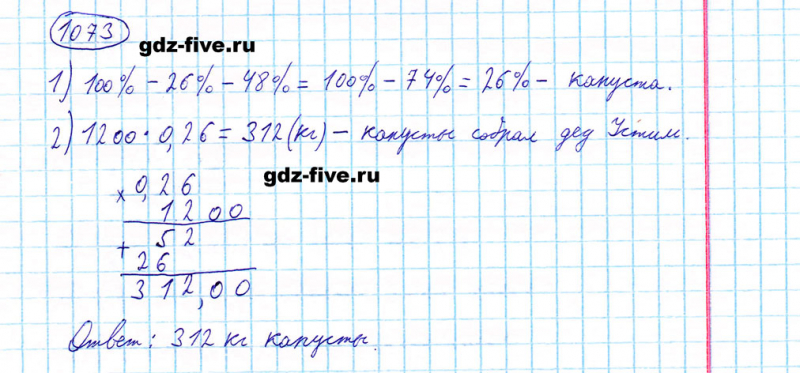 1073
gdz-five.ru
1) 100% - 26% - 48% = 100% - 74% = 26% - капуста.
2) 1200 · 0,26 = 312 (кг) - капусты собрал дед Устим.
gdz-five.ru
× 0,26
1200
+ 52
26
312,00
Ответ: 312 кг капусты.